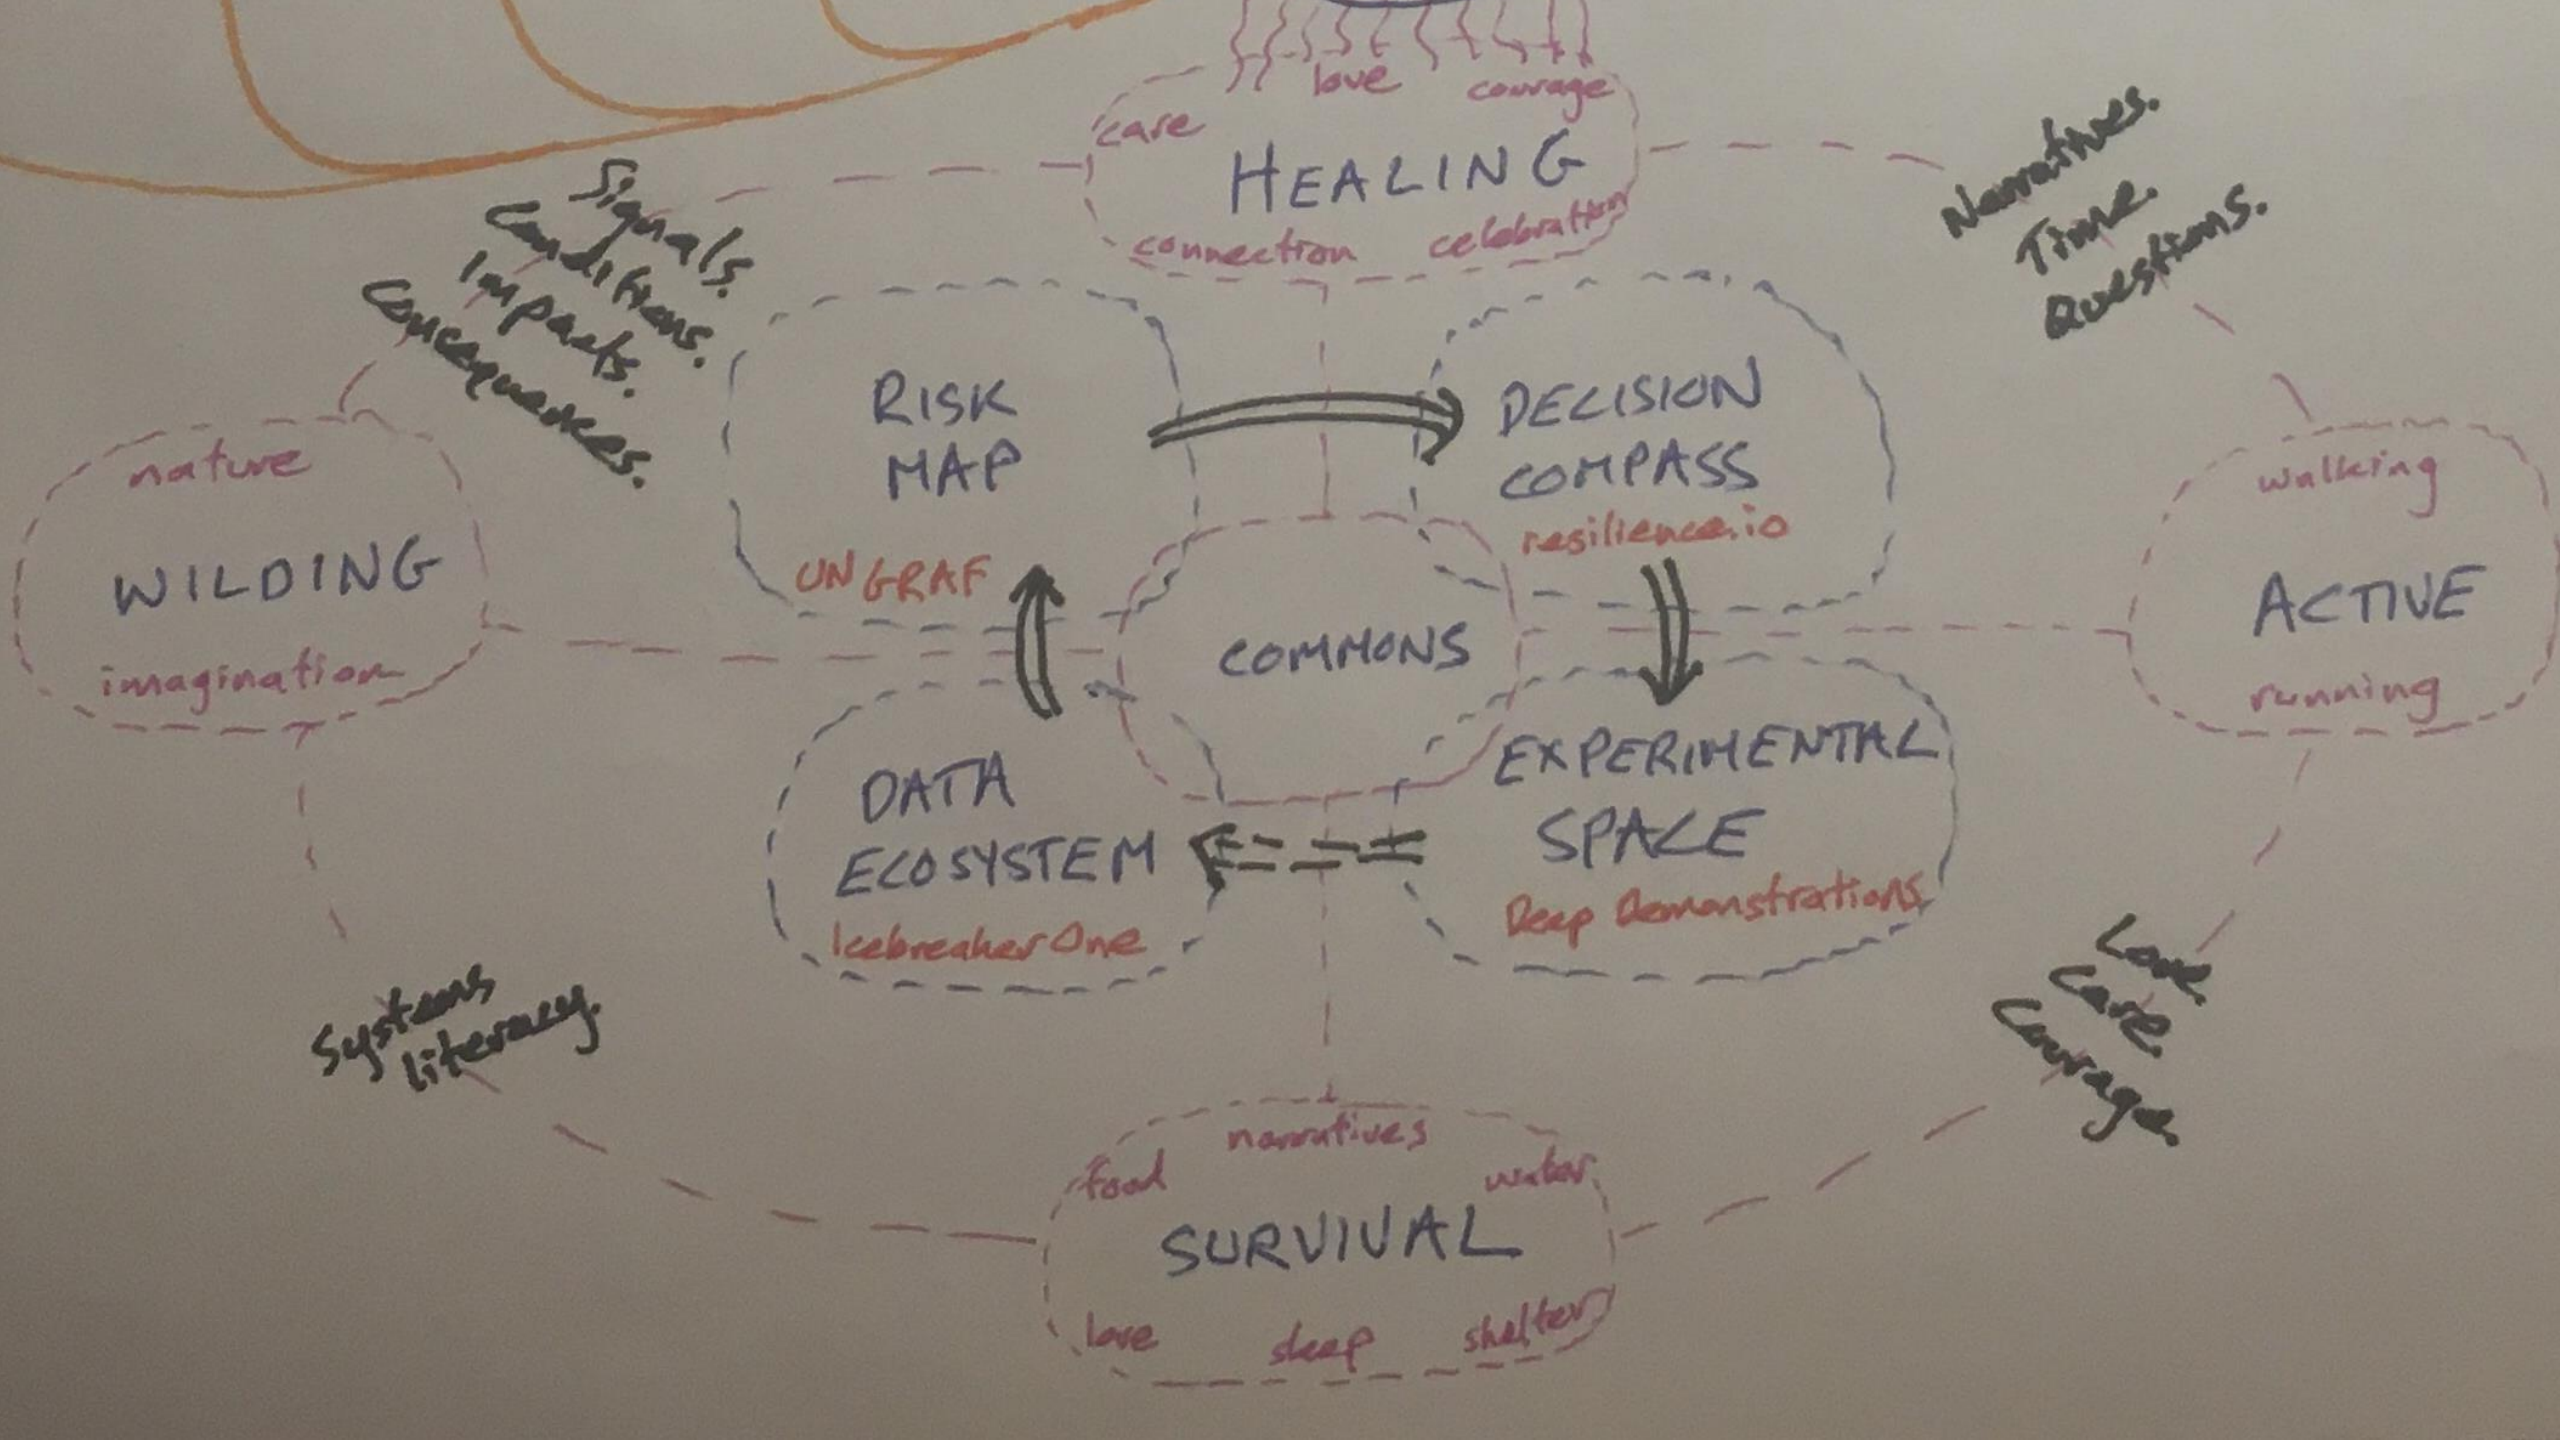 love
courage
care
HEALING
connection
celebration
Signals.
Conditions.
Impacts.
Concequences.
Narratives.
Time.
Questions.
RISK
MAP
UN GRAF
DECISION
COMPASS
resilience.io
nature
WILDING
imagination
COMMONS
walking
ACTIVE
running
DATA
ECOSYSTEM
Icebreaker One
EXPERIMENTAL
SPACE
Deep Demonstrations
Systems
literacy.
Love.
Care.
Courage.
narratives
food
water
SURVIVAL
love
sleep
shelter